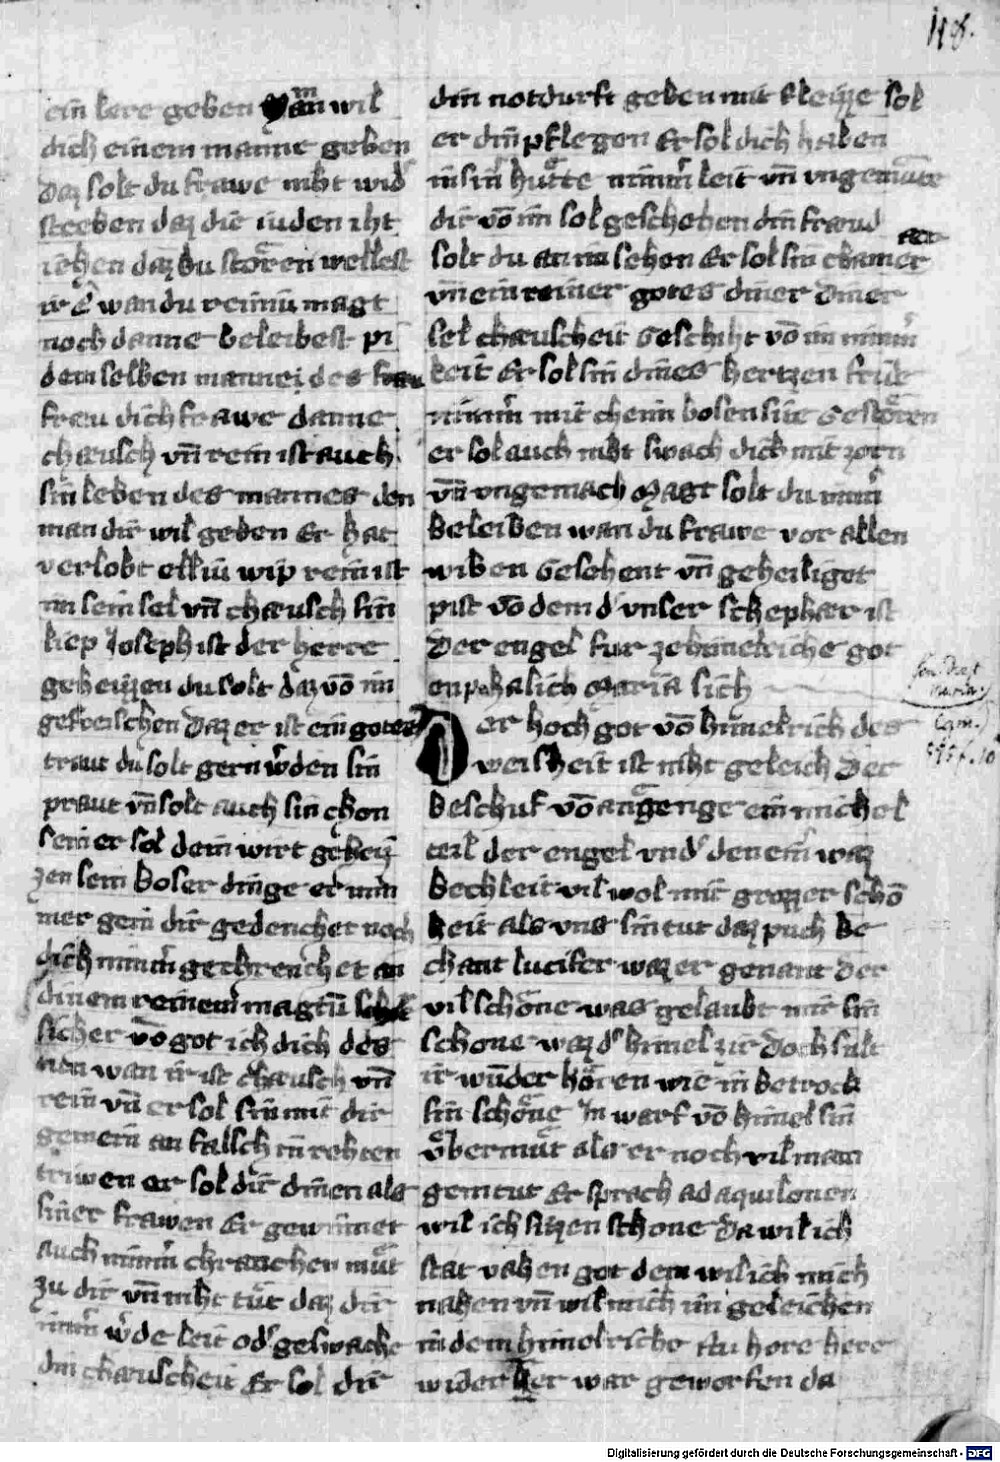 118.
ein lere geben Man wil
dich einem manne geben
daz solt du frawe niht wid'
streben daz die iuden iht
iehen daz du stören wellest
ir e wan du reiniu magt
noch danne beleibest pi
dem selben manne des
frau dich frawe danne
chæusch vn̄ rein ist auch
sin leben des mannes den
man dir wil geben Er hat
verlobt elliu wip rein ist
im sein sel vn̄ chæusch sin
liep Joseph ist der herre
geheizzen du solt daz vō im
gefreischen Daz er ist ein goter
traut du solt gern w'den sin
praut vn̄ solt auch sin chon
sein er sol dein wirt geheiz
zen sein Boser dinge er nim
mer gein dir gedenchet noch
dich nimm' gechrenchet an
dinem reinem magtū
sicher vō got ich dich des
nen wan ir ist chæusch vn̄
rein vn̄ er sol sin mit dir
gemein an falsch in rehten
triwen er sol dir dinen als
siner frawen Er gewinnet
auch nimm' chranchen müt
zu dir vn̄ niht tüt daz dir
nimm' w'de leit od' geswache
din chæuscheit Er sol dir
din notdurft geben mit fleizze sol
er din pflegen Er sol dich haben
in sin' hütte nimm' leit vn̄ vngemäch
dir vō im sol geschehen din fræud
solt du an im sehen Er sol sin chamer
vn̄ ein reiner gotes diner Diner
sel chæuscheit Geschiht vō im nimm'
leit Er sol sin dines hertzen fride
nimm' mit cheim bosen site Gestören
er sol auch niht swach dich mit zorn
vn̄ vngemach Magt solt du nim'
Beleiben wan du frawe vor allen
wiben Gesehent vn̄ geheiliget
pist vō dem d' vnser schephær ist
Der engel fur ze himelriche got
enphalich Maria sich
Der hoch got vō himelrich des
weisheit ist niht geleich Der
Beschuf vō angenge ein michel
teil der engel vnd' den ein' waz
Becleit vil wol mit grozzer schö
heit als vns sin tut daz puch Be
chant lucifer waz er genant Der
vil schöne was gelaubt mit sin
schone waz d' himel zir Doch sult
ir wūder hören wie in betrock
sin schöne In warf vō himel sin
vbermüt als er noch vil man
gem tut Er sprach ad aquilonem
wil ich sitzen schone Da wil ich
stat vahen got dem wil ich mich
nahen vn̄ wil mich im geleichen
in dem himelriche Nu hore here
wider er war geworfen da
Digitalisierung gefördert durch die Deutsche Forschungsgemeinschaft - DFG